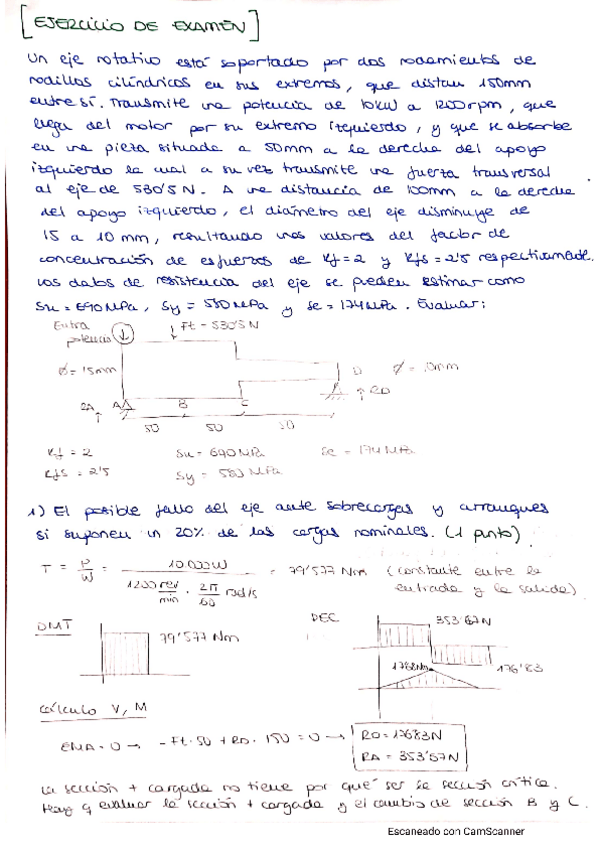 [EJERCICIO DE EXAMEN]
Un eje rotativo está soportado por dos rodamientos de
rodillos cilíndricos en sus extremos, que distan 150mm
entre sí. Transmite una potencia de 10kW a 1200rpm, que
llega del motor por su extremo izquierdo, y que se absorbe
en una pieza situada a 50mm a la derecha del apoyo
izquierdo la cual a su vez transmite una fuerza transversal
al eje de 530'5 N. A una distancia de 100mm a la derecha
del apoyo izquierdo, el diámetro del eje disminuye de
15 a 10 mm, resultando unos valores del factor de
concentración de esfuerzos de Kf=2 y Kfs=2'5 respectivamente.
Los datos de resistencia del eje se pueden estimar como
Su=690MPa, Sy=580MPa y Se=174MPa. Evaluar:
Entra
potencia
Ft = 530'5 N
Ø = 15mm
D
Ø = 10mm
RA
A
B
C
RD
50
50
50
Kf = 2
Su = 690 MPa
Se = 174 MPa
Kfs = 2'5
Sy = 580 MPa
1) El posible fallo del eje ante sobrecargas y arranques
si suponen un 20% de las cargas nominales. (1 punto)
T = P/W = 10.000W / 1200 rev/min · 2π/60 rad/s = 79'577 Nm (constante entre la
entrada y la salida)
DMT
79'577 Nm
DEC
353'67N
176'83
Cálculo V, M
EMA = 0 → -Ft·50 + RD·150 = 0 →
RD = 176'83N
RA = 353'67N
La sección + cargada no tiene por qué ser la sección crítica.
Hay q evaluar la sección + cargada y el cambio de sección B y C.
Escaneado con CamScanner